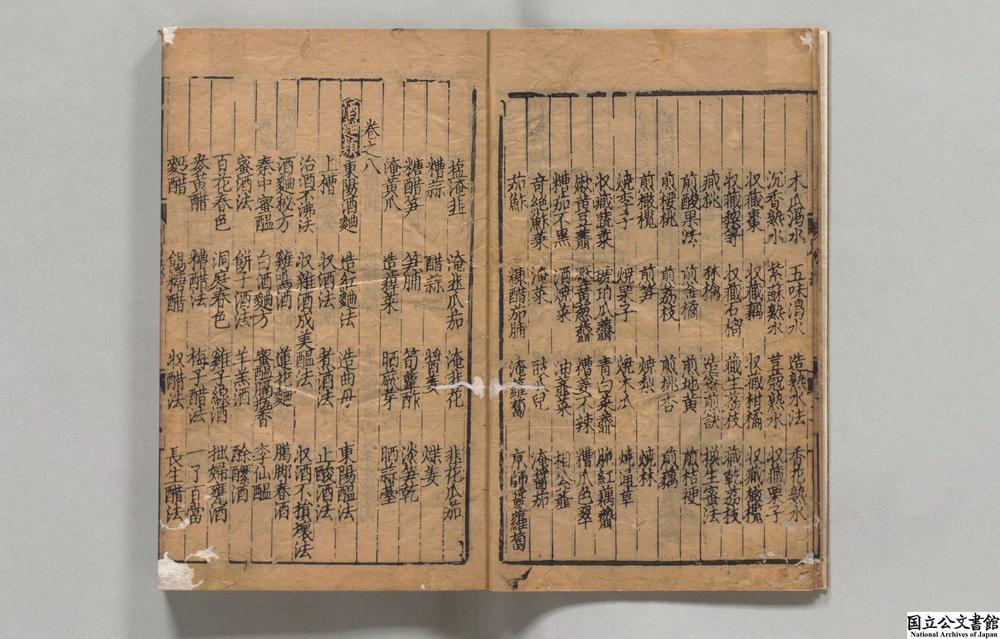 木瓜渴水 五味渴水 造熟水法 香花熟水
沉香熟水 紫蘇熟水 荳蔻熟水 収藏栗子
収藏棗 収藏藕 収藏柑橘 収藏橄欖
収藏梨等 収藏石榴 藏生荔枝 藏乾荔枝
藏桃 林檎 造蜜煎訣
煎酸果法 煎金橘 煎地黄 煎桔梗
煎櫻桃 煎荔枝 煎桃杏 煎藕
煎橄欖 煎笋 燒梨 燒林
燒李子 燒栗子 燒木瓜 燒通草
収藏蔬菜 琥珀瓜虀 青白菜虀 紅藕虀
嫩黄豆虀 糟姜不辣 糟瓜色翠
糟茄不黑 酒燒菜 油韲菜 相公虀
奇絶鮓菜 淹菜 淹茄
茄鮓 煉醋茄脯 淹蘿蔔 京師 蘿蔔
塩淹韭 淹韭瓜茄 淹韭花 韭花瓜茄
糟蒜 醋蒜 醬姜 姜
糖醋笋 笋脯 筍鮓 淡笋乾
淹黄瓜 造菜 晒蕨芽 晒蒜薹
卷之八
酒麯類 東陽酒麯 造紅麯法 造曲母 東陽醖法
上槽 収酒法 煮酒法 止酸酒法
治酒不沸法 収雜酒成美醖法 収酒不損壞法
酒麯秘方 雞鳴酒 蓮花麯 臘脚春酒
秦中蜜醖 白酒麯方 蜜醖透瓶香 李仙醖
蜜酒法 餅子酒法 羊羔酒 酴醿酒
百花春色 洞庭春色 雞綿酒 拙婦甕酒
麥黄醋 糟醋法 梅子醋法 一了百當
麨醋 餳糖醋 収醋法 長生醋法
国立公文書館
National Archives of Japan